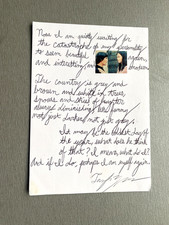 Now I am quietly waiting for
the catastrophe of my personality
to seem beautiful again,
and interesting, and modern.
The country is grey and
brown and white in trees,
snows and skies of laughter
always diminishing, less funny
not just darker, not just grey.
It may be the coldest day of
the year, what does he think
of that? I mean, what do I?
And if I do, perhaps I am myself again.